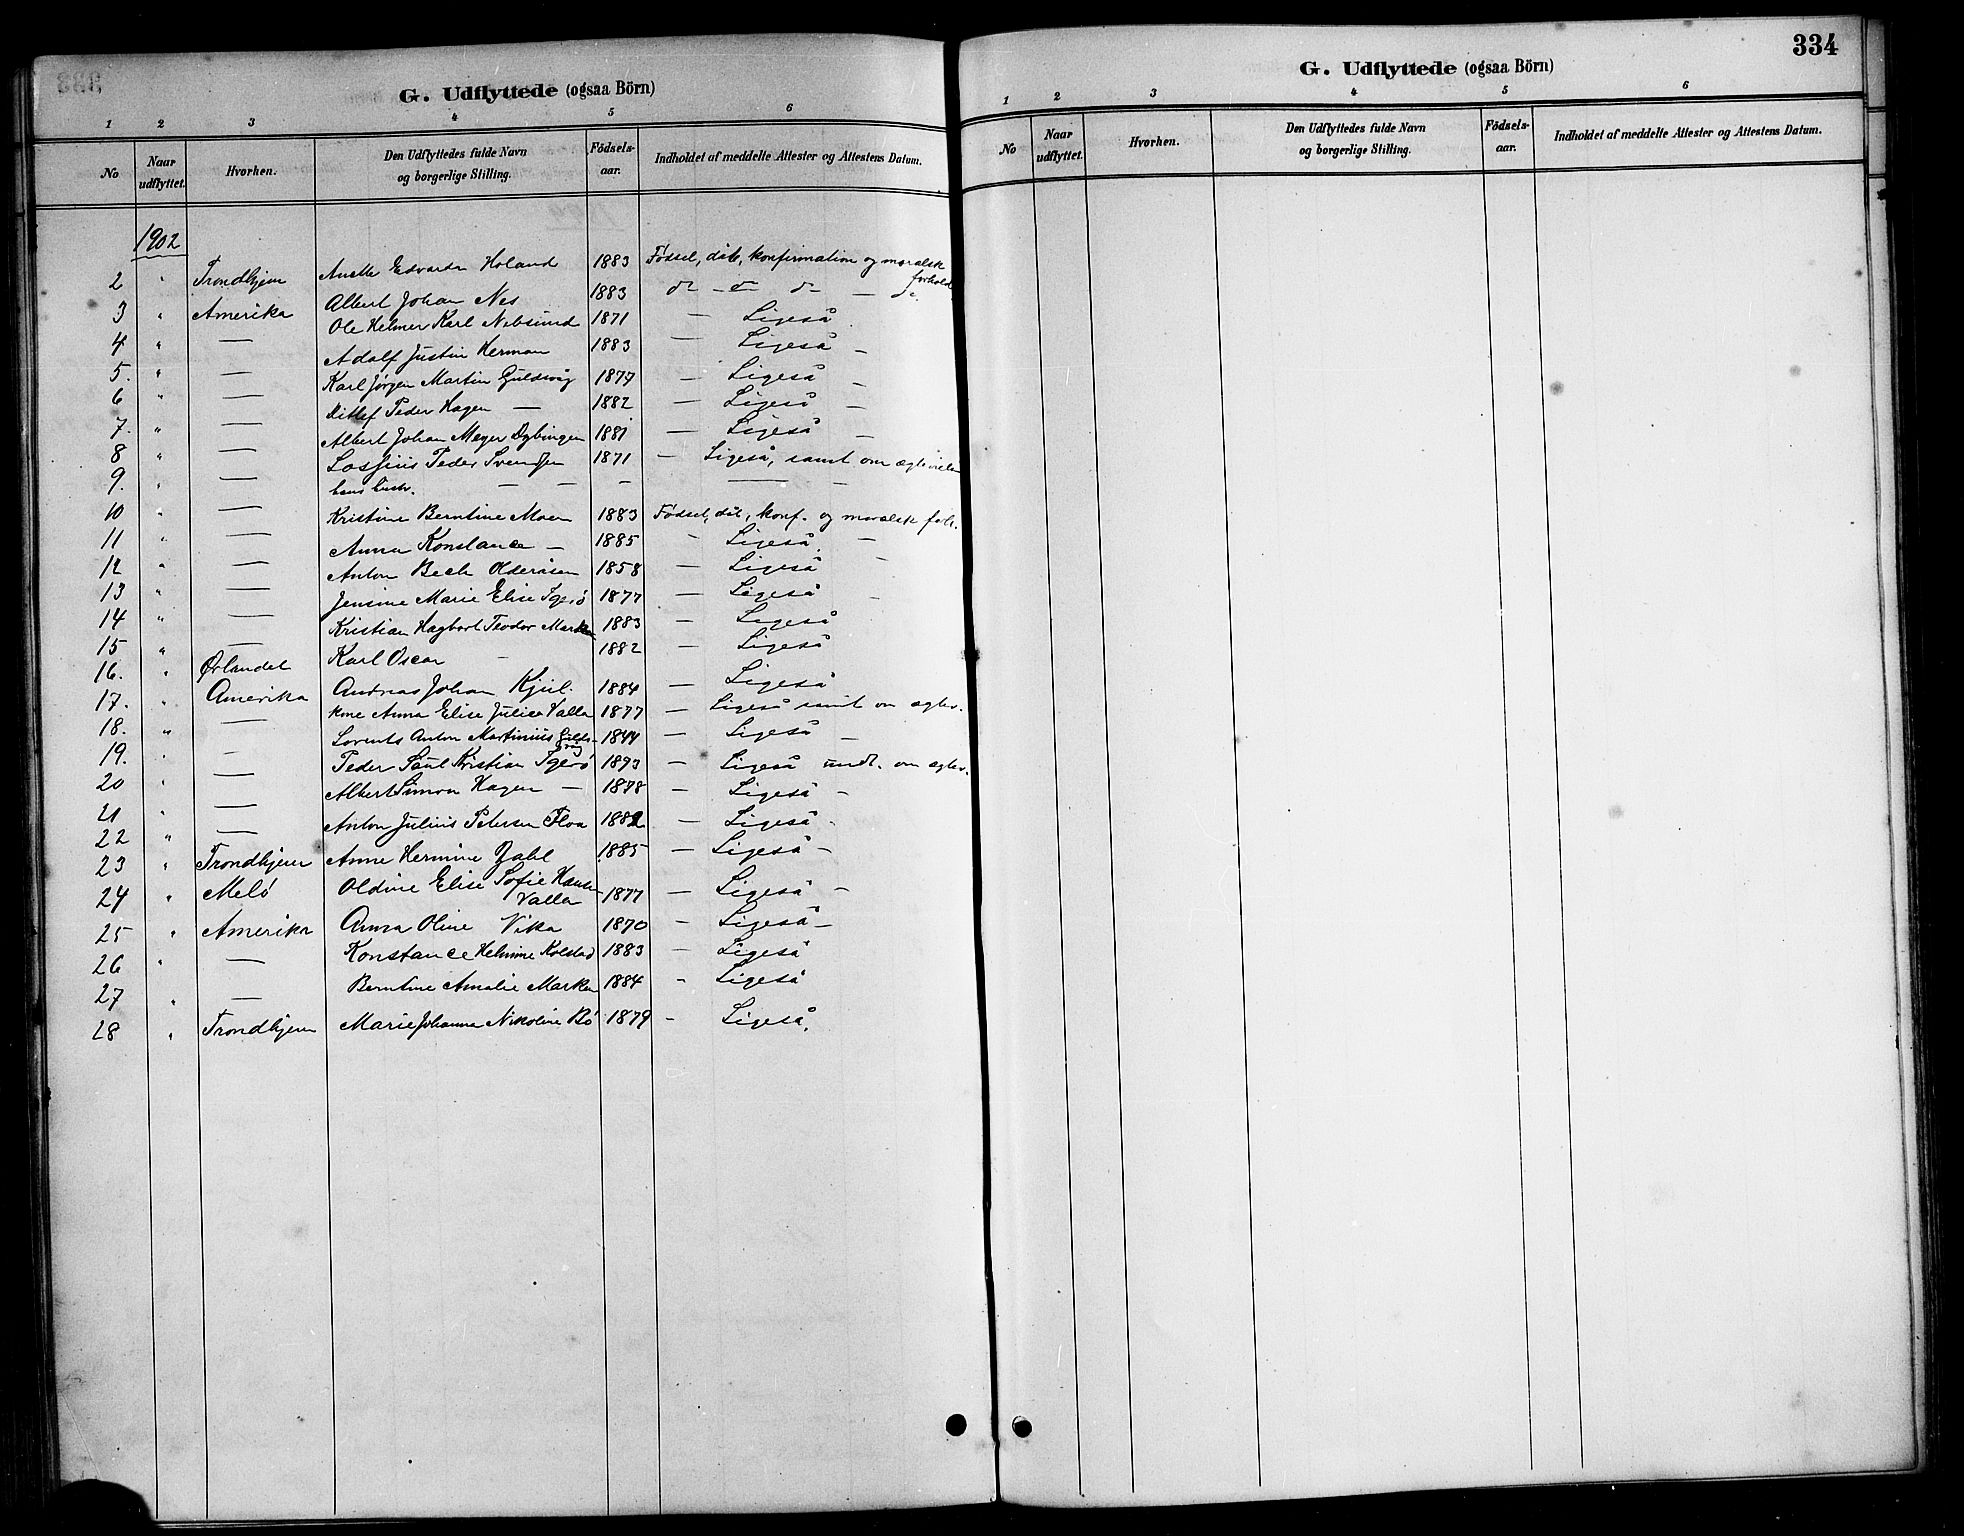 G. Udflyttede (ogsaa Börn)
1 2 3 4 5 6
No Naar udflyttet. Hvorhen. Den Udflyttedes fulde Navn og borgerlige Stilling. Födsels-aar. Indholdet af meddelte Attester og Attestens Datum.
1902
2 " Trondhjem Anette Edvarda Holand 1883 Fødsel, dåb, konfirmation og moralsk forhold
3 " Amerika Albert Johan Nes 1883 do - do do - do.
4 " — Ole Helmer Karl Nebsund 1871 — Ligeså
5. " — Adolf Justin Herman 1883 — Ligeså —
6 " — Karl Jørgen Martin Guldvåg 1877 — Ligeså —
7. " — Ditlef Peder Hagen — 1882 — Ligeså —
8 " — Albert Johan Meyer Dybingen 1881 — Ligeså —
9. " — Peder Svendsen 1871 — Ligeså, samt om
hans hustr. — — — — —
10 " — Kristine Berntine Moen 1883 Fødsel, dåb, konf. og moralsk forh.
11 " — Anna Konstance — 1885 - Ligeså —
12 " — Anton Bech Olderåsen 1858 — Ligeså —
13 " — Jensine Marie Elise Tgerø 1877 — Ligeså —
14 " — Kristian Hagbart Teodor Marken 1883 — Ligeså
15 " — Karl Oscar — 1882 — Ligeså
16. " Ørlandet Andreas Johan Kjul. 1884 — Ligeså
17. " Amerika kone Anna Elise Julie Valla 1877 — Ligeså samt om ægtev.
18. " — Lorents Anton Martinius Guldvåg 1844 — Ligeså —
19. " — Peder Paul Kristian Tgerø 1873 — Ligeså undt. om ægtev.
20 " — Albert Simon Hagen — 1878 — Ligeså —
21 " —
22 " — Anton Julius Petersen Floa 1882 — Ligeså -
23 " Trondhjem Anne Hermine Dahl 1885 — Ligeså —
24 " Melø Oldine Elise Sofie Valla 1877 — Ligeså —
25 " Amerika Anna Oline Vika 1870 — Ligeså —
26 " — Konstance Helmine Kolstad 1883 — Ligeså
27 " — Berntine Amalie Marken 1884 - Ligeså
28 " Trondhjem Marie Johanna Nikoline Bö 1879 - Ligeså.
334
G. Udflyttede (ogsaa Börn)
1 2 3 4 5 6
No Naar udflyttet. Hvorhen. Den Udflyttedes fulde Navn og borgerlige Stilling. Födsels-aar. Indholdet af meddelte Attester og Attestens Datum.